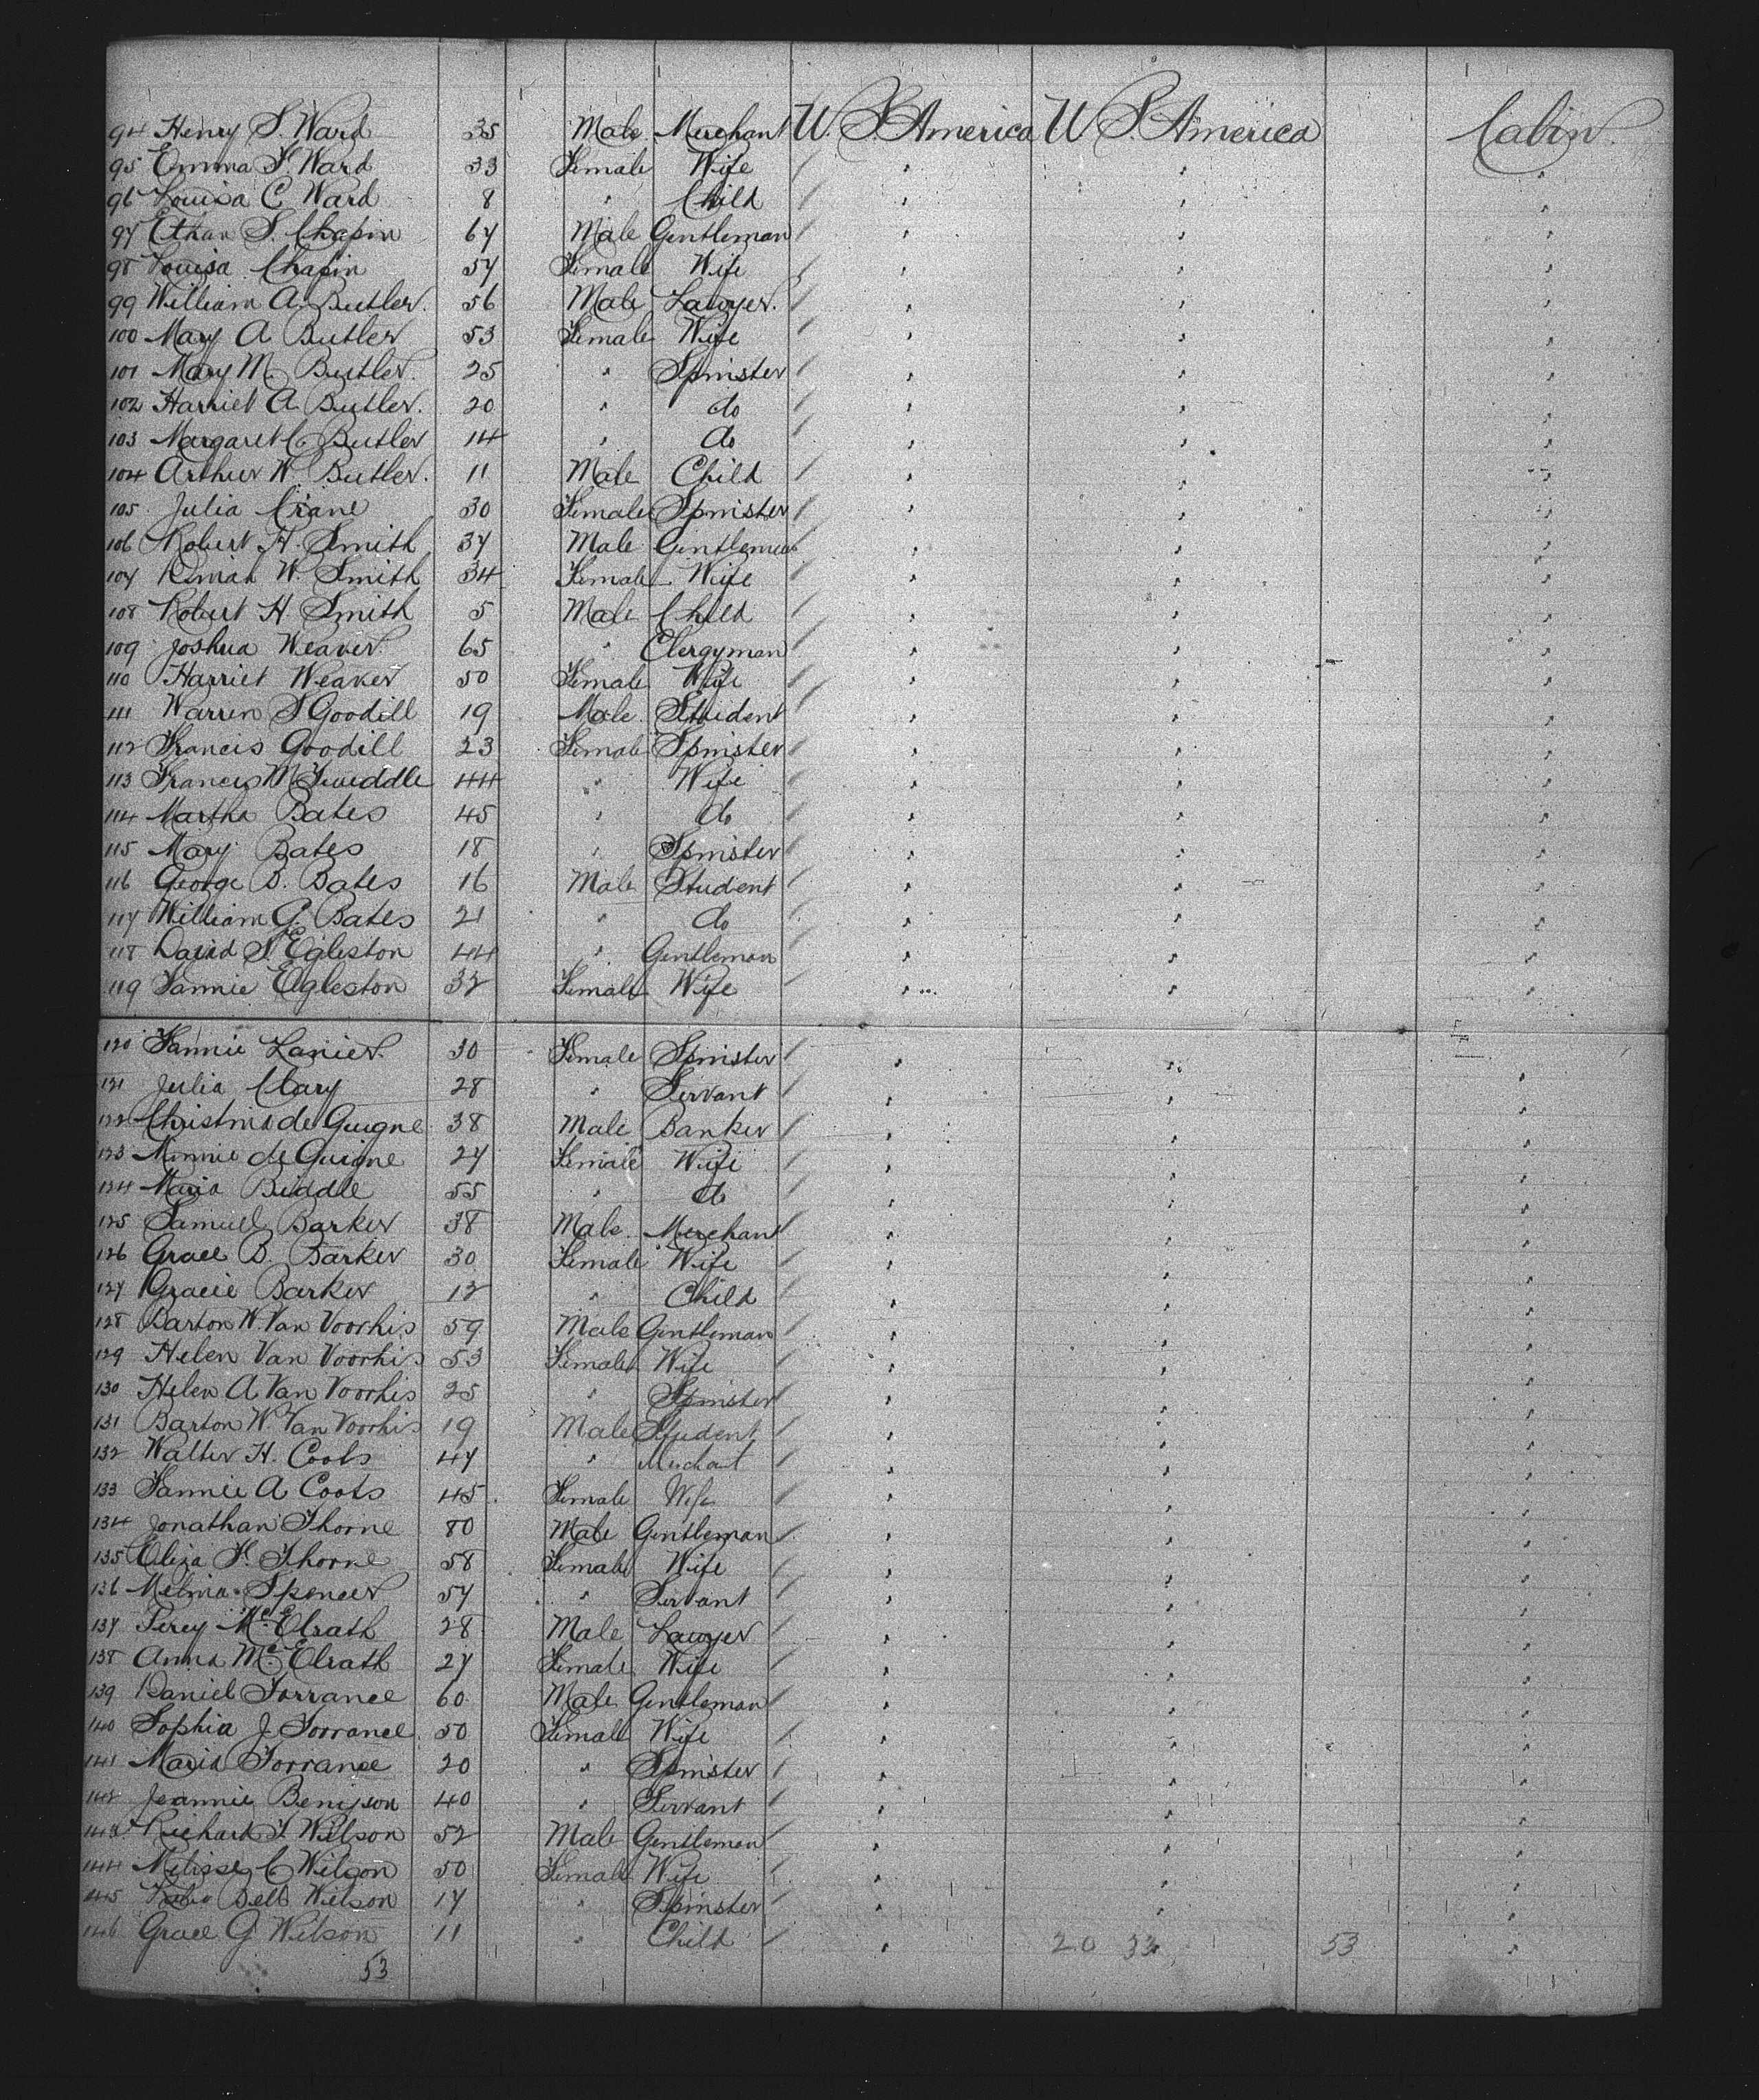 94 Henry S. Ward 35 Male Merchant U. S. America U S America Cabin
95 Emma F. Ward 33 Female Wife " " "
96 Louisa C Ward 8 " Child " " "
97 Ethan S. Chapin 67 Male Gentleman " " "
98 Louisa Chapin 57 Female Wife " " "
99 William A. Butler. 56 Male Lawyer. " " "
100 Mary A Butler 53 Female Wife " " "
101 Mary M. Butler. 25 " Spinster " " "
102 Harriet A Butler. 20 " do " " "
103 Margaret C Butler 14 " do " " "
104 Arthur W. Butler. 11 Male Child " " "
105 Julia Crane 30 Female Spinster " " "
106 Robert H. Smith 37 Male Gentleman " " "
107 W. Smith 34 Female Wife " " "
108 Robert H Smith 5 Male Child " " "
109 Joshua Weaver 65 " Clergyman " " "
110 Harriet Weaver 50 Female Wife " " "
111 Warren S Goodill 19 Male Student " " "
112 Francis Goodill 23 Female Spinster " " "
113 Francis M Tweddle 44 " Wife " " "
114 Martha Bates 45 " do " " "
115 Mary Bates 18 " Spinster " " "
116 George B. Bates 16 Male Student " " "
117 William G. Bates 21 " do " " "
118 David S. Egleston 44 " Gentleman " " "
119 Fannie Egleston 32 Female Wife " " "
120 Fannie Lanier 30 Female Spinster " " "
121 Julia Clary 28 " Servant " " "
122 de Guigne 38 Male Banker " " "
123 Minnie de Guigne 27 Female Wife " " "
124 Maria Biddle 55 " do " " "
125 Samuel Barker 38 Male Merchant " " "
126 Grace B. Barker 30 Female Wife " " "
127 Gracie Barker 12 " Child " " "
128 Barton W. Van Voorhis 59 Male Gentleman " " "
129 Helen Van Voorhis 53 Female Wife " " "
130 Helen A Van Voorhis 25 " Spinster " " "
131 Barton W. Van Voorhis 19 Male Student " " "
132 Walter H. Coots 47 " Merchant " " "
133 Fannie A Coots 45 Female Wife " " "
134 Jonathan Thorne 80 Male Gentleman " " "
135 Eliza F. Thorne 58 Female Wife " " "
136 Melina Spencer 57 " Servant " " "
137 Percy McElrath 28 Male Lawyer " " "
138 Anna McElrath 27 Female Wife " " "
139 Daniel Torrance 60 Male Gentleman " " "
140 Sophia J. Torrance 50 Female Wife " " "
141 Maria Torrance 20 " Spinster " " "
142 Jeannie Benyson 40 " Servant " " "
143 Richard T. Wilson 52 Male Gentleman " " "
144 Melissa C Wilson 50 Female Wife " " "
145 Bell Wilson 17 " Spinster " " "
146 Grace G Wilson 11 " Child " 20 33 53 "
53